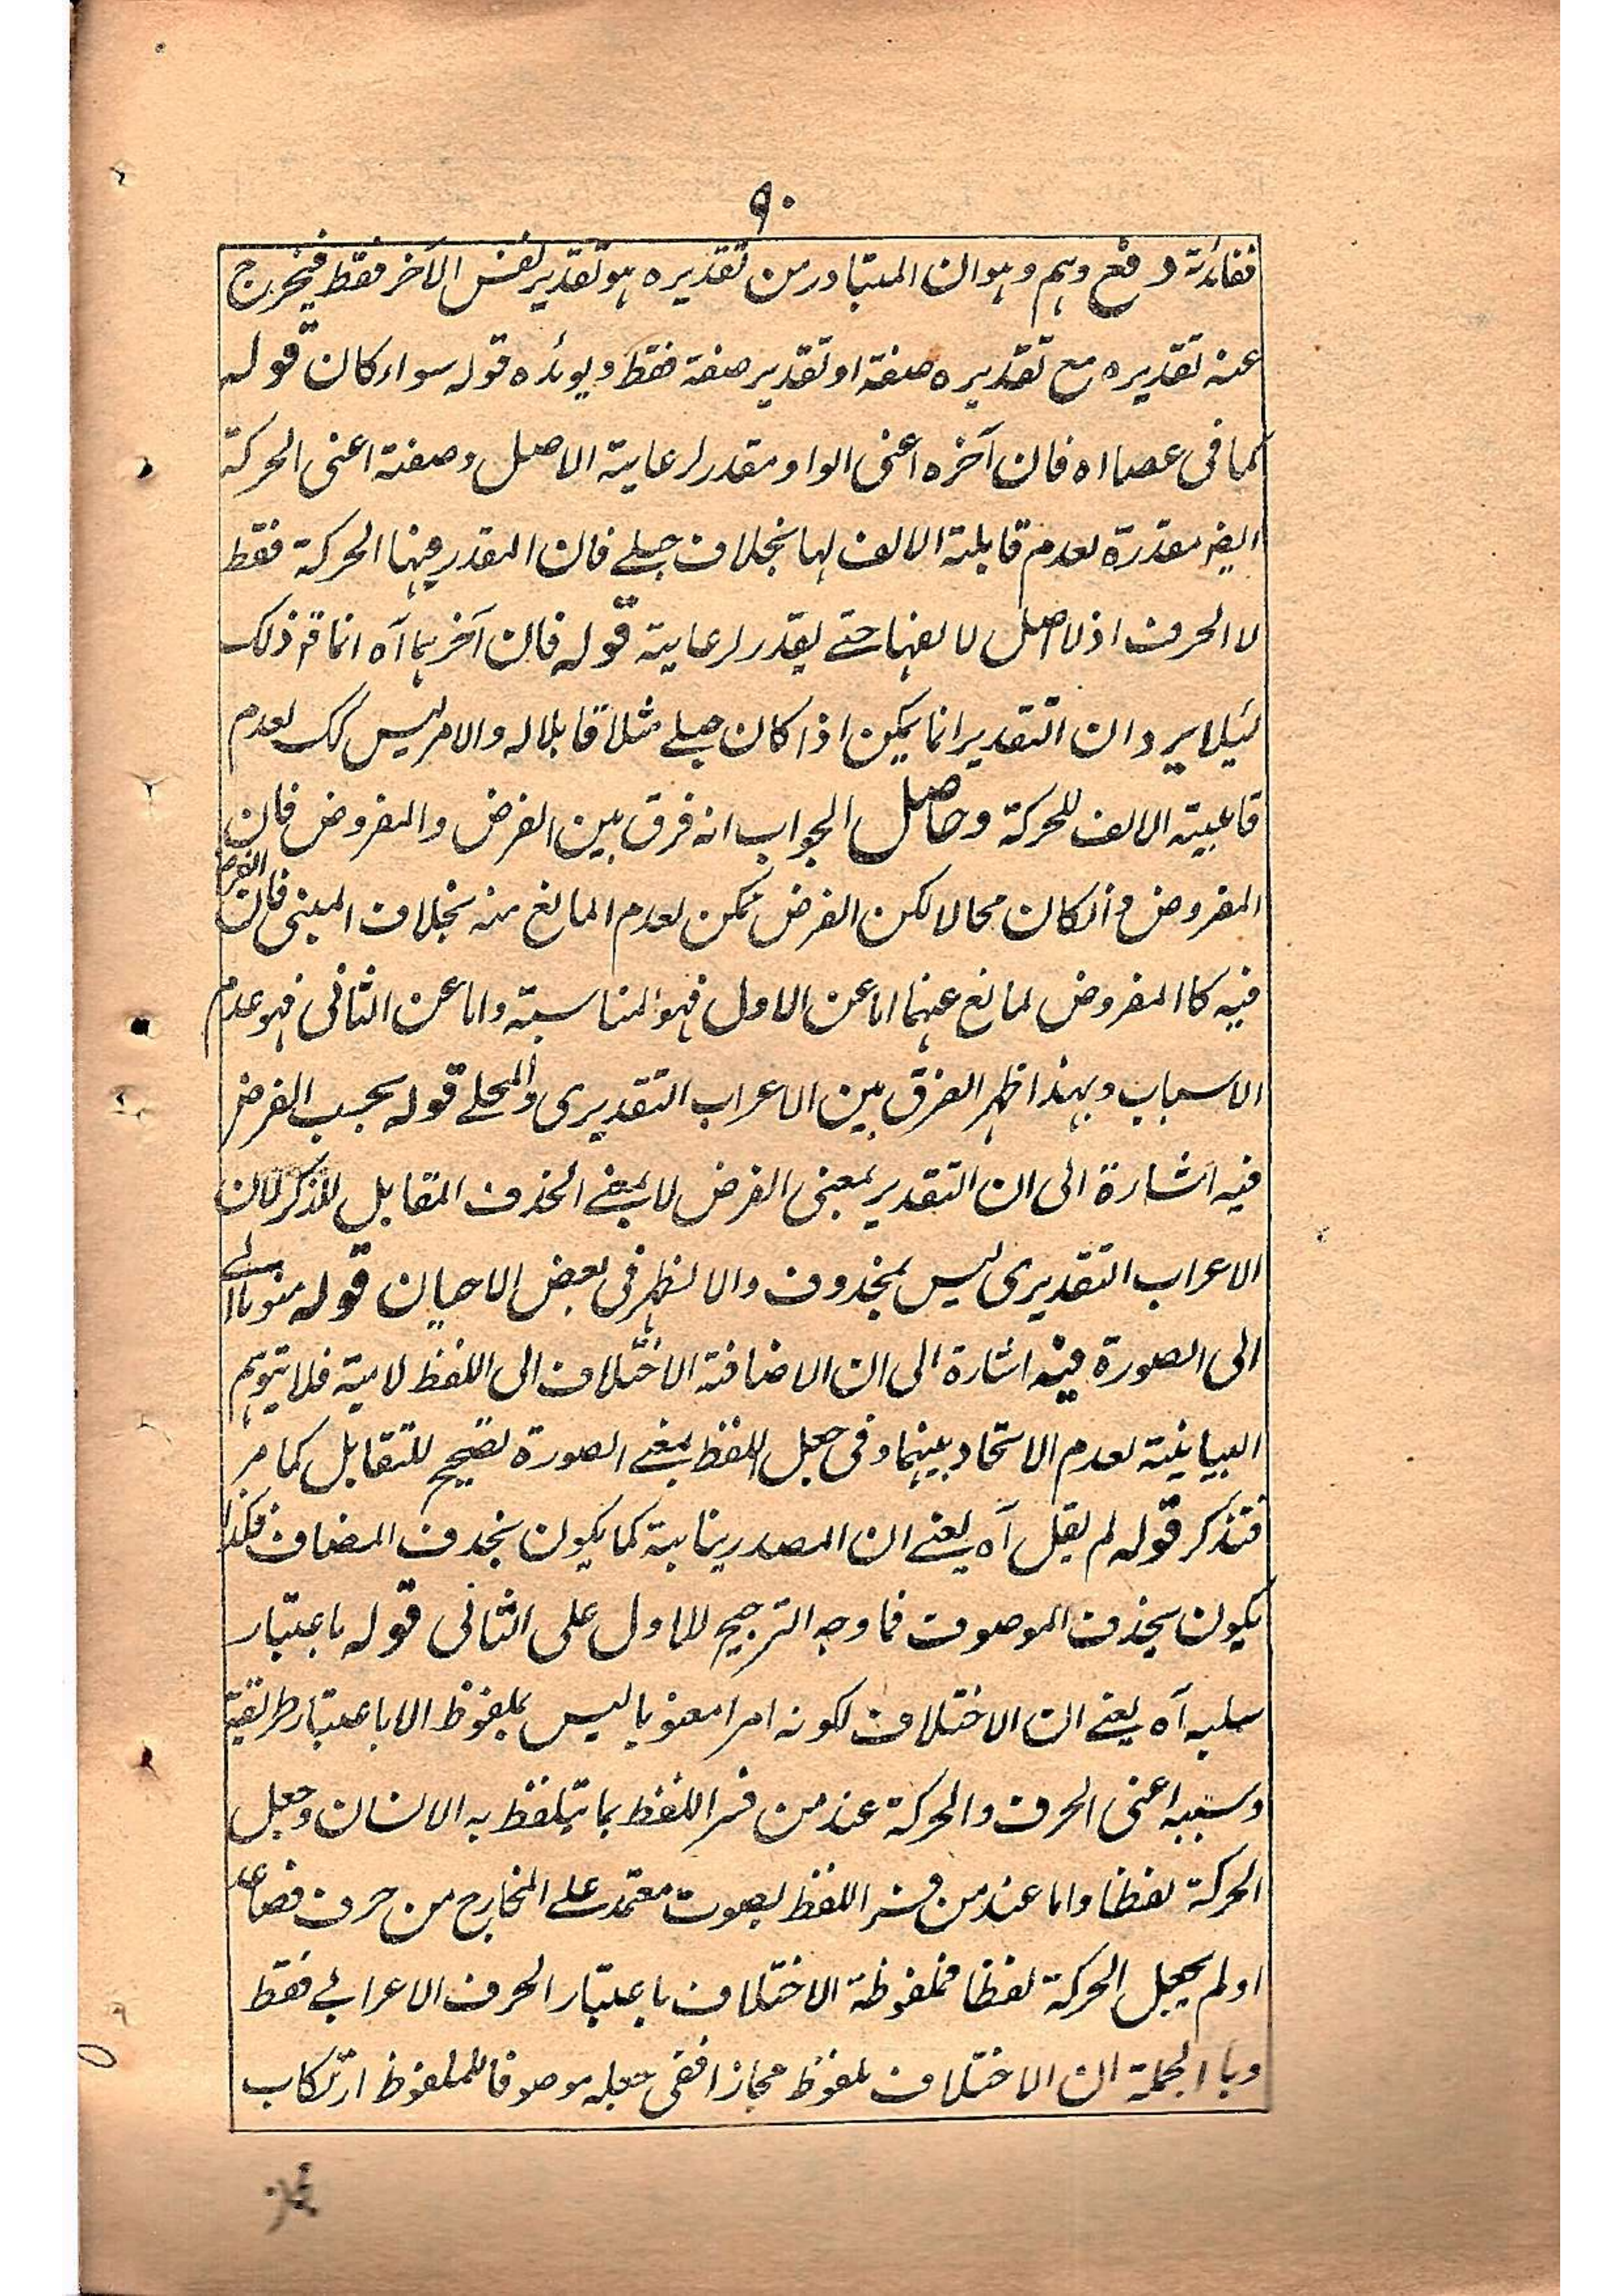 ٩٠
ففائدته دفع وهم وهو ان المتبادر من تقديره هو تقدير نفس الآخر فقط فيخرج
عنه تقديره مع تقديره صفته او تقدير صفته فقط ويوئده قوله سواء كان قوله
كما فى عصا اه فان آخره اعنى الواو مقدر لرعاية الاصل وصفته اعنى الحركة
ايضا مقدرة لعدم قابلية الالف لها بخلاف حبلے فان المقدر فيها الحركة فقط
لا الحرف اذ لا اصل لالفها حتے يقدر لرعاية قوله فان آخرهما آه انما ذلك
لئيلا يرد ان التقدير انما يمكن اذا كان حبلے مثلا قابلا له والامر ليس كك لعدم
قاعبية الالف للحركة وحاصل الجواب انه فرق بين الفرض والمفروض فان
المفروض وانكان محالا لكن الفرض ممكن لعدم المانع منه بخلاف المبنى فان الفرض
فيه كا المفروض لمانع عنهما اما عن الاول فهو المناسبة واما عن الثانى فهو عدم
الاسباب وبهذا ظهر الفرق بين الاعراب التقديرى والمحلے قوله بحسب الفرض
فيه اشارة الى ان التقدير بمعنى الفرض لا بمعنے الحذف المقابل للذكر لان
الاعراب التقديرى ليس بمحذوف والا لظهر فى بعض الاحيان قوله منوبا اے
الى الصورة فيه اشارة الى ان الاضافة الاختلاف الى اللفظ لامية فلا يتوهم
البيانية لعدم الاتحاد بينهما وفى جعل اللفظ بمعنے الصورة تصحيح للتقابل كما مر
فتذكر قوله لم يقل آه يعنے ان المصدر ينابته كما يكون بحذف المضاف فكذا
يكون بحذف الموصوف فما وجه الترجيح للاول على الثانى قوله باعتبار
سلبه آه يعنے ان الاختلاف لكونه امرا معنويا ليس بملفوظ الا باعتبار طريقة
وسببه اعنى الحرف والحركة عند من فسر اللفظ بما يتلفظ به الانسان وجعل
الحركة لفظا واما عند من فسر اللفظ بصوت معتمد علے المخارج من حرف فصاعدا
او لم يجعل الحركة لفظا فملفوظة الاختلاف باعتبار الحرف الاعرابے فقط
وبا الجملة ان الاختلاف ملفوظ مجازا ففى جعله موصوفا للملفوظ ارتكاب